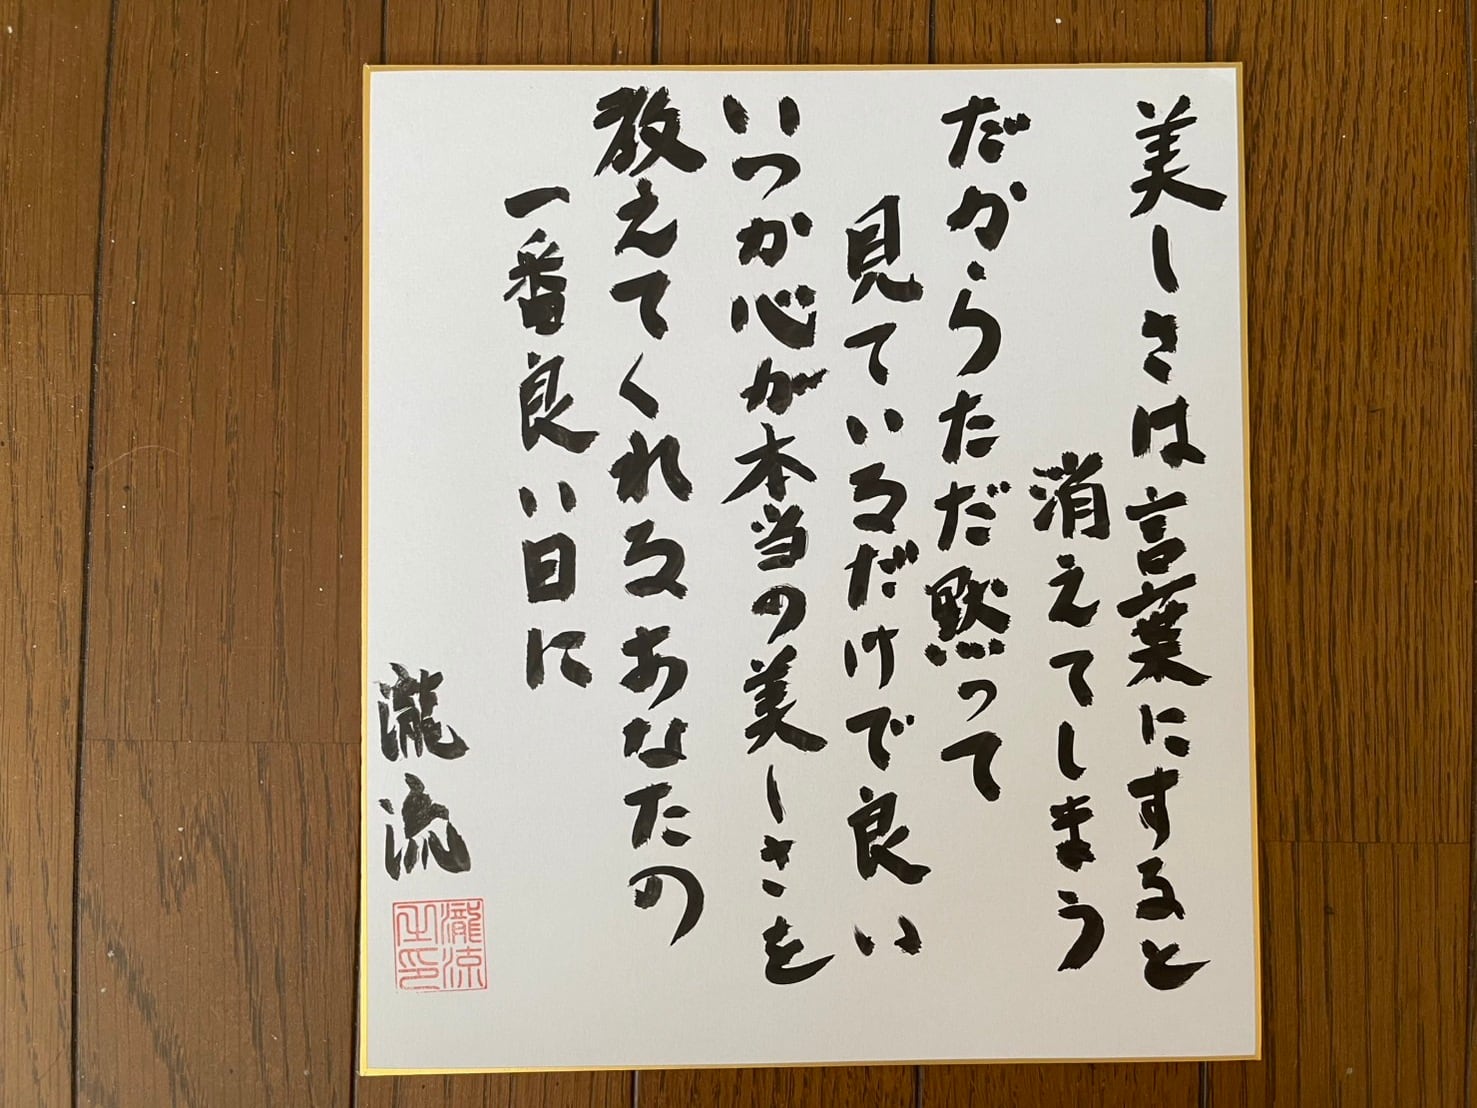 美しさは言葉にすると
消えてしまう
だからただ黙って
見ているだけで良い
いつか心が本当の美しさを
教えてくれるあなたの
一番良い日に
瀧流
瀧涼
之印